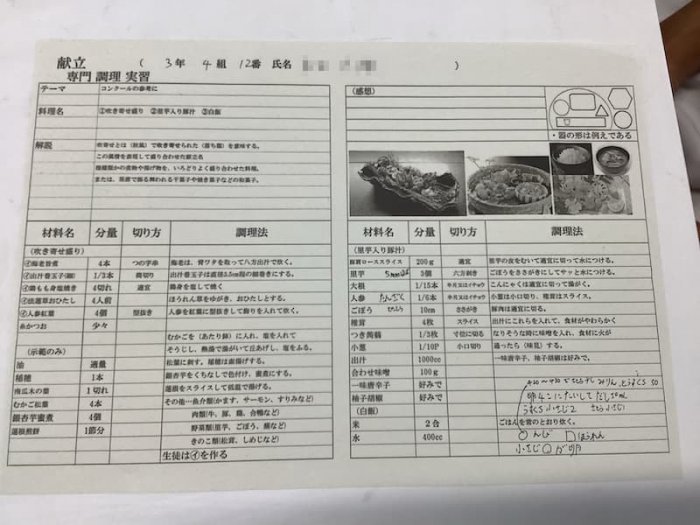 献立 ( 3年 4組 12番 氏名 )
専門 調理 実習
テーマ コンクールの参考に
料理名 ①吹き寄せ盛り ②里芋入り豚汁 ③白飯
解説 吹寄せとは(秋風)で吹き寄せられた(落ち葉)を意味する。
この風情を表現して盛り合わせた献立名
種類の煮物や揚げ物を、いろどりよく盛り合わせた料理。
または、茶席で振る舞われる干菓子や焼き菓子などの和菓子。
材料名 分量 切り方 調理法
(吹き寄せ盛り)
㋑海老旨煮 4本 つの字串 海老は、背ワタを取って八方出汁で炊く。
㋑出汁巻玉子(鶏) 1/3本 筒切り 出汁巻玉子は直径3.5cm程の細巻きにする。
㋑鶏もも身塩焼き 4切れ 適宜 鶏身を塩して焼く
㋑法蓮草おひたし 4人前 ほうれん草をゆがき、おひたしとする。
㋑人参紅葉 4個 型抜き 人参を紅葉に型抜きして飾りを入れて炊く。
糸かつお 少々
むかごを(あたり鉢)に入れ、塩を入れて
(示範のみ) そうじし、熱湯で湯がいて丘あげし、塩をふる。
油 適量 松葉に刺す。稲穂は素揚げする。
稲穂 1本 銀杏芋をくちなしで色付け、蜜煮にする。
南瓜木の葉 1切れ 蓮根をスライスして低温で揚げる。
むかご松葉 4本 その他…魚介類(かます、サーモン、すりみなど)
銀杏芋蜜煮 4個 肉類(牛、豚、鶏、合鴨など)
蓮根煎餅 1節分 野菜類(里芋、ごぼう、蕪など)
きのこ類(松茸、しめじなど)
生徒は㋑を作る
(感想)
・器の形は例えである
材料名 分量 切り方 調理法
(里芋入り豚汁)
豚肩ローススライス 200g 適宜 里芋の皮をむいて適宜に切って水につける。
里芋 3個 六方剥き ごぼうをささがきにしてサッと水につける。
大根 1/15本 半月又はイチョウ こんにゃくは適宜に切って湯がく。
人参 1/6本 半月又はイチョウ 小葱は小口切り、椎茸はスライス。
ごぼう 10cm ささがき 豚肉は適宜に切る。
椎茸 4枚 スライス 出汁にこれらを入れて、食材がやわらかく
つき蒟蒻 1/3枚 寸位に切る なりそうな時に味噌を入れ、食材に火が
小葱 1/10P 小口切り 通ったら(味見)する。
出汁 1000cc 一味唐辛子、柚子胡椒は好みで。
合わせ味噌 100g
一味唐辛子 好みで
柚子胡椒 好みで
(白飯)
米 2合 ごはんを常のとおり炊く。
水 400cc